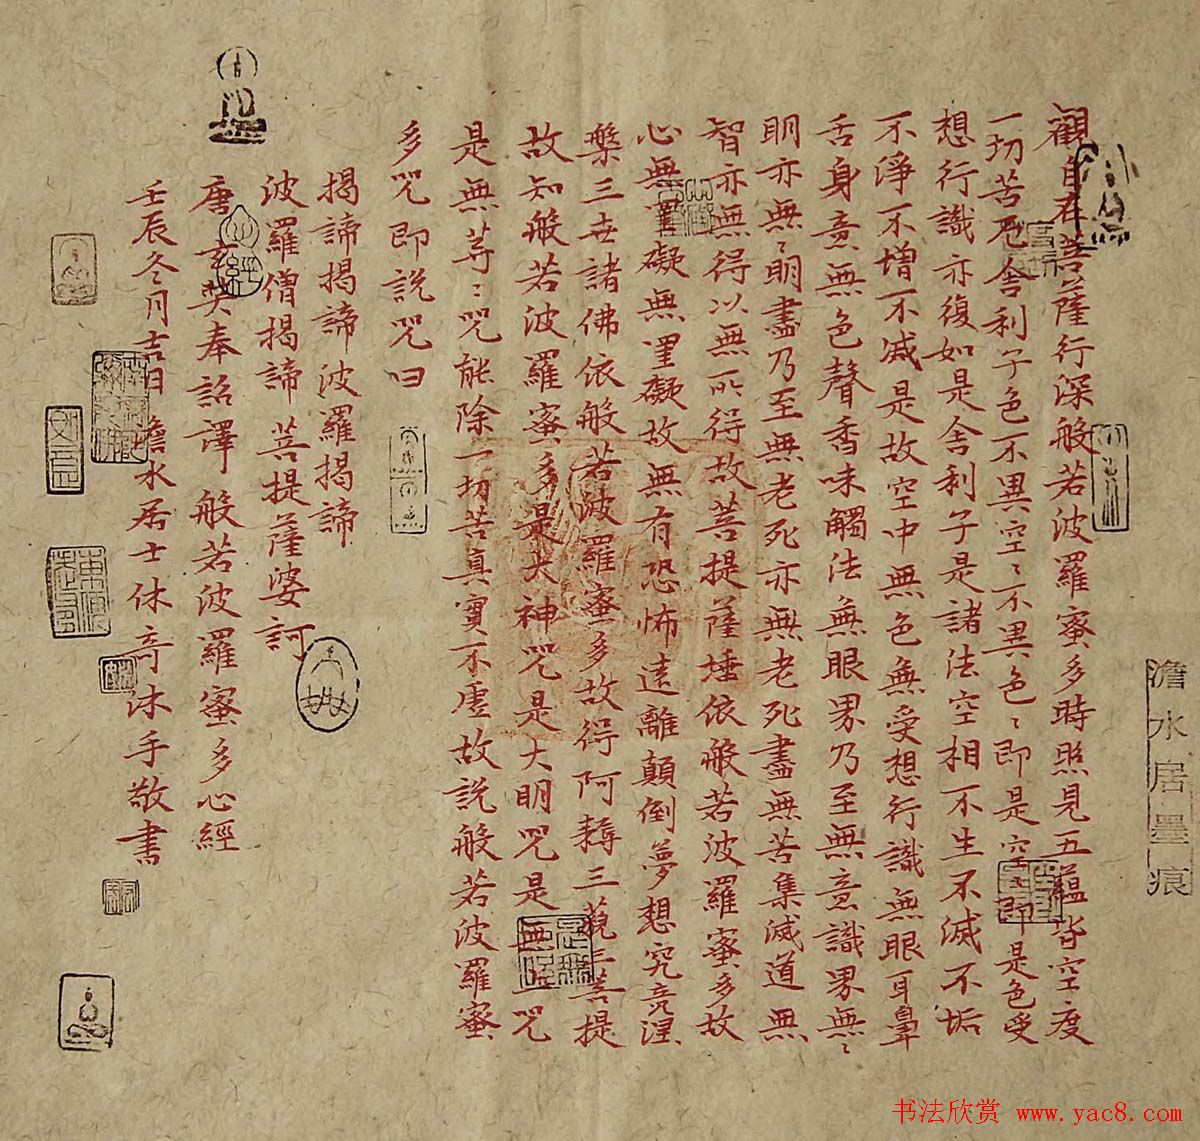 觀自在菩薩行深般若波羅蜜多時照見五蘊皆空度
一切苦厄舍利子色不異空〻不異色〻即是空〻即是色受
想行識亦復如是舍利子是諸法空相不生不滅不垢
不淨不增不減是故空中無色無受想行識無眼耳鼻
舌身意無色聲香味觸法無眼界乃至無意識界無〻
明亦無〻明盡乃至無老死亦無老死盡無苦集滅道無
智亦無得以無所得故菩提薩埵依般若波羅蜜多故
心無罣礙無罣礙故無有恐怖遠離顛倒夢想究竟涅
槃三世諸佛依般若波羅蜜多故得阿耨三藐三菩提
故知般若波羅蜜多是大神咒是大明咒是無上咒
是無等〻咒能除一切苦真實不虛故說般若波羅蜜
多咒即說咒曰
揭諦揭諦波羅揭諦
波羅僧揭諦菩提薩婆訶
唐玄奘奉詔譯般若波羅蜜多心經
壬辰冬月吉日澹水居士休奇沐手敬書
澹水居墨痕
书法欣赏 www.yac8.com